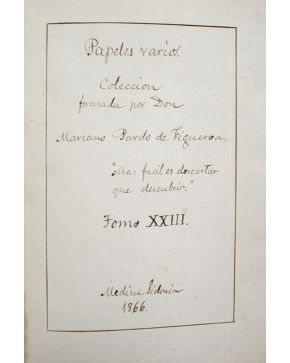 Papeles varios.
Coleccion
formada por Don
Mariano Pardo de Figueroa.
"Mas facil es descartar
que descubrir."
Tomo XXIII.
Medina Sidonia
1866.